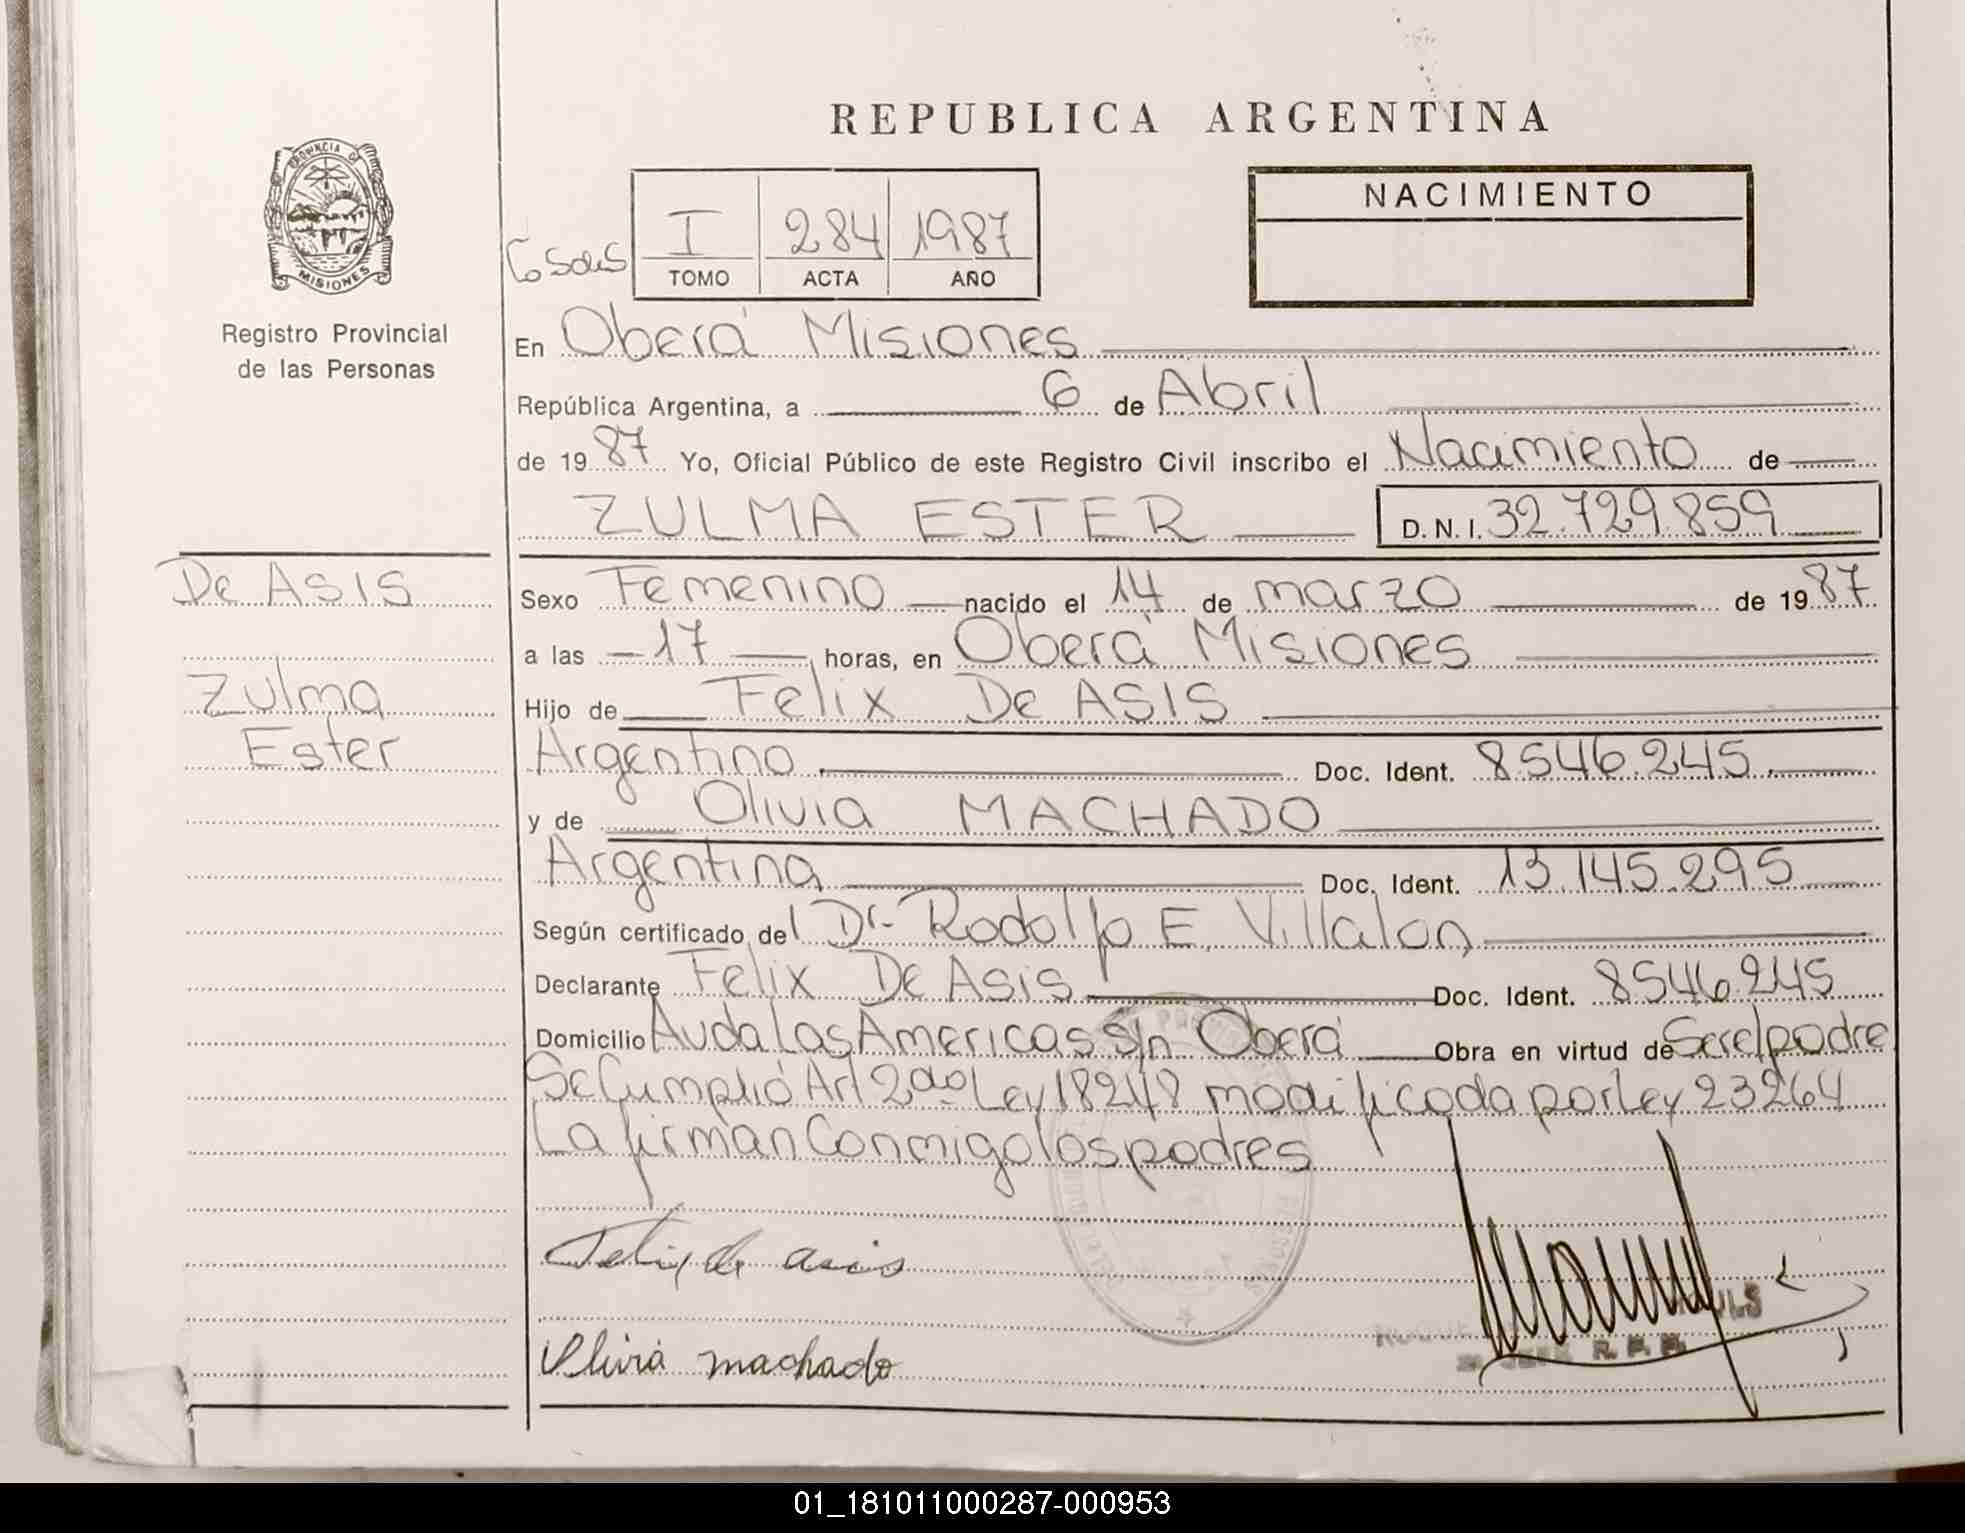 REPUBLICA ARGENTINA
PROVINCIA DE
MISIONES
Registro Provincial
de las Personas
I 284 1987
TOMO ACTA AÑO
NACIMIENTO
En Oberá Misiones
República Argentina, a 6 de Abril
de 1987 Yo, Oficial Público de este Registro Civil inscribo el Nacimiento de
ZULMA ESTER D.N.I. 32.729.859
De ASIS
Zulma
Ester
Sexo Femenino nacido el 14 de marzo de 1987
a las 17 horas, en Oberá Misiones
Hijo de Felix De ASIS
Argentino Doc. Ident. 8546.245
y de Olivia MACHADO
Argentina Doc. Ident. 13.145.295
Según certificado del Dr. Rodolfo E. Villalon
Declarante Felix De Asis Doc. Ident. 8546.245
Domicilio Avda Las Americas S/n Oberá Obra en virtud de Ser el padre
Se Cumplió Art 2do Ley 18248 modificada por Ley 23264
La firman Conmigo los padres
Felix de asis
Olivia machado
R. P. P.
01_181011000287-000953